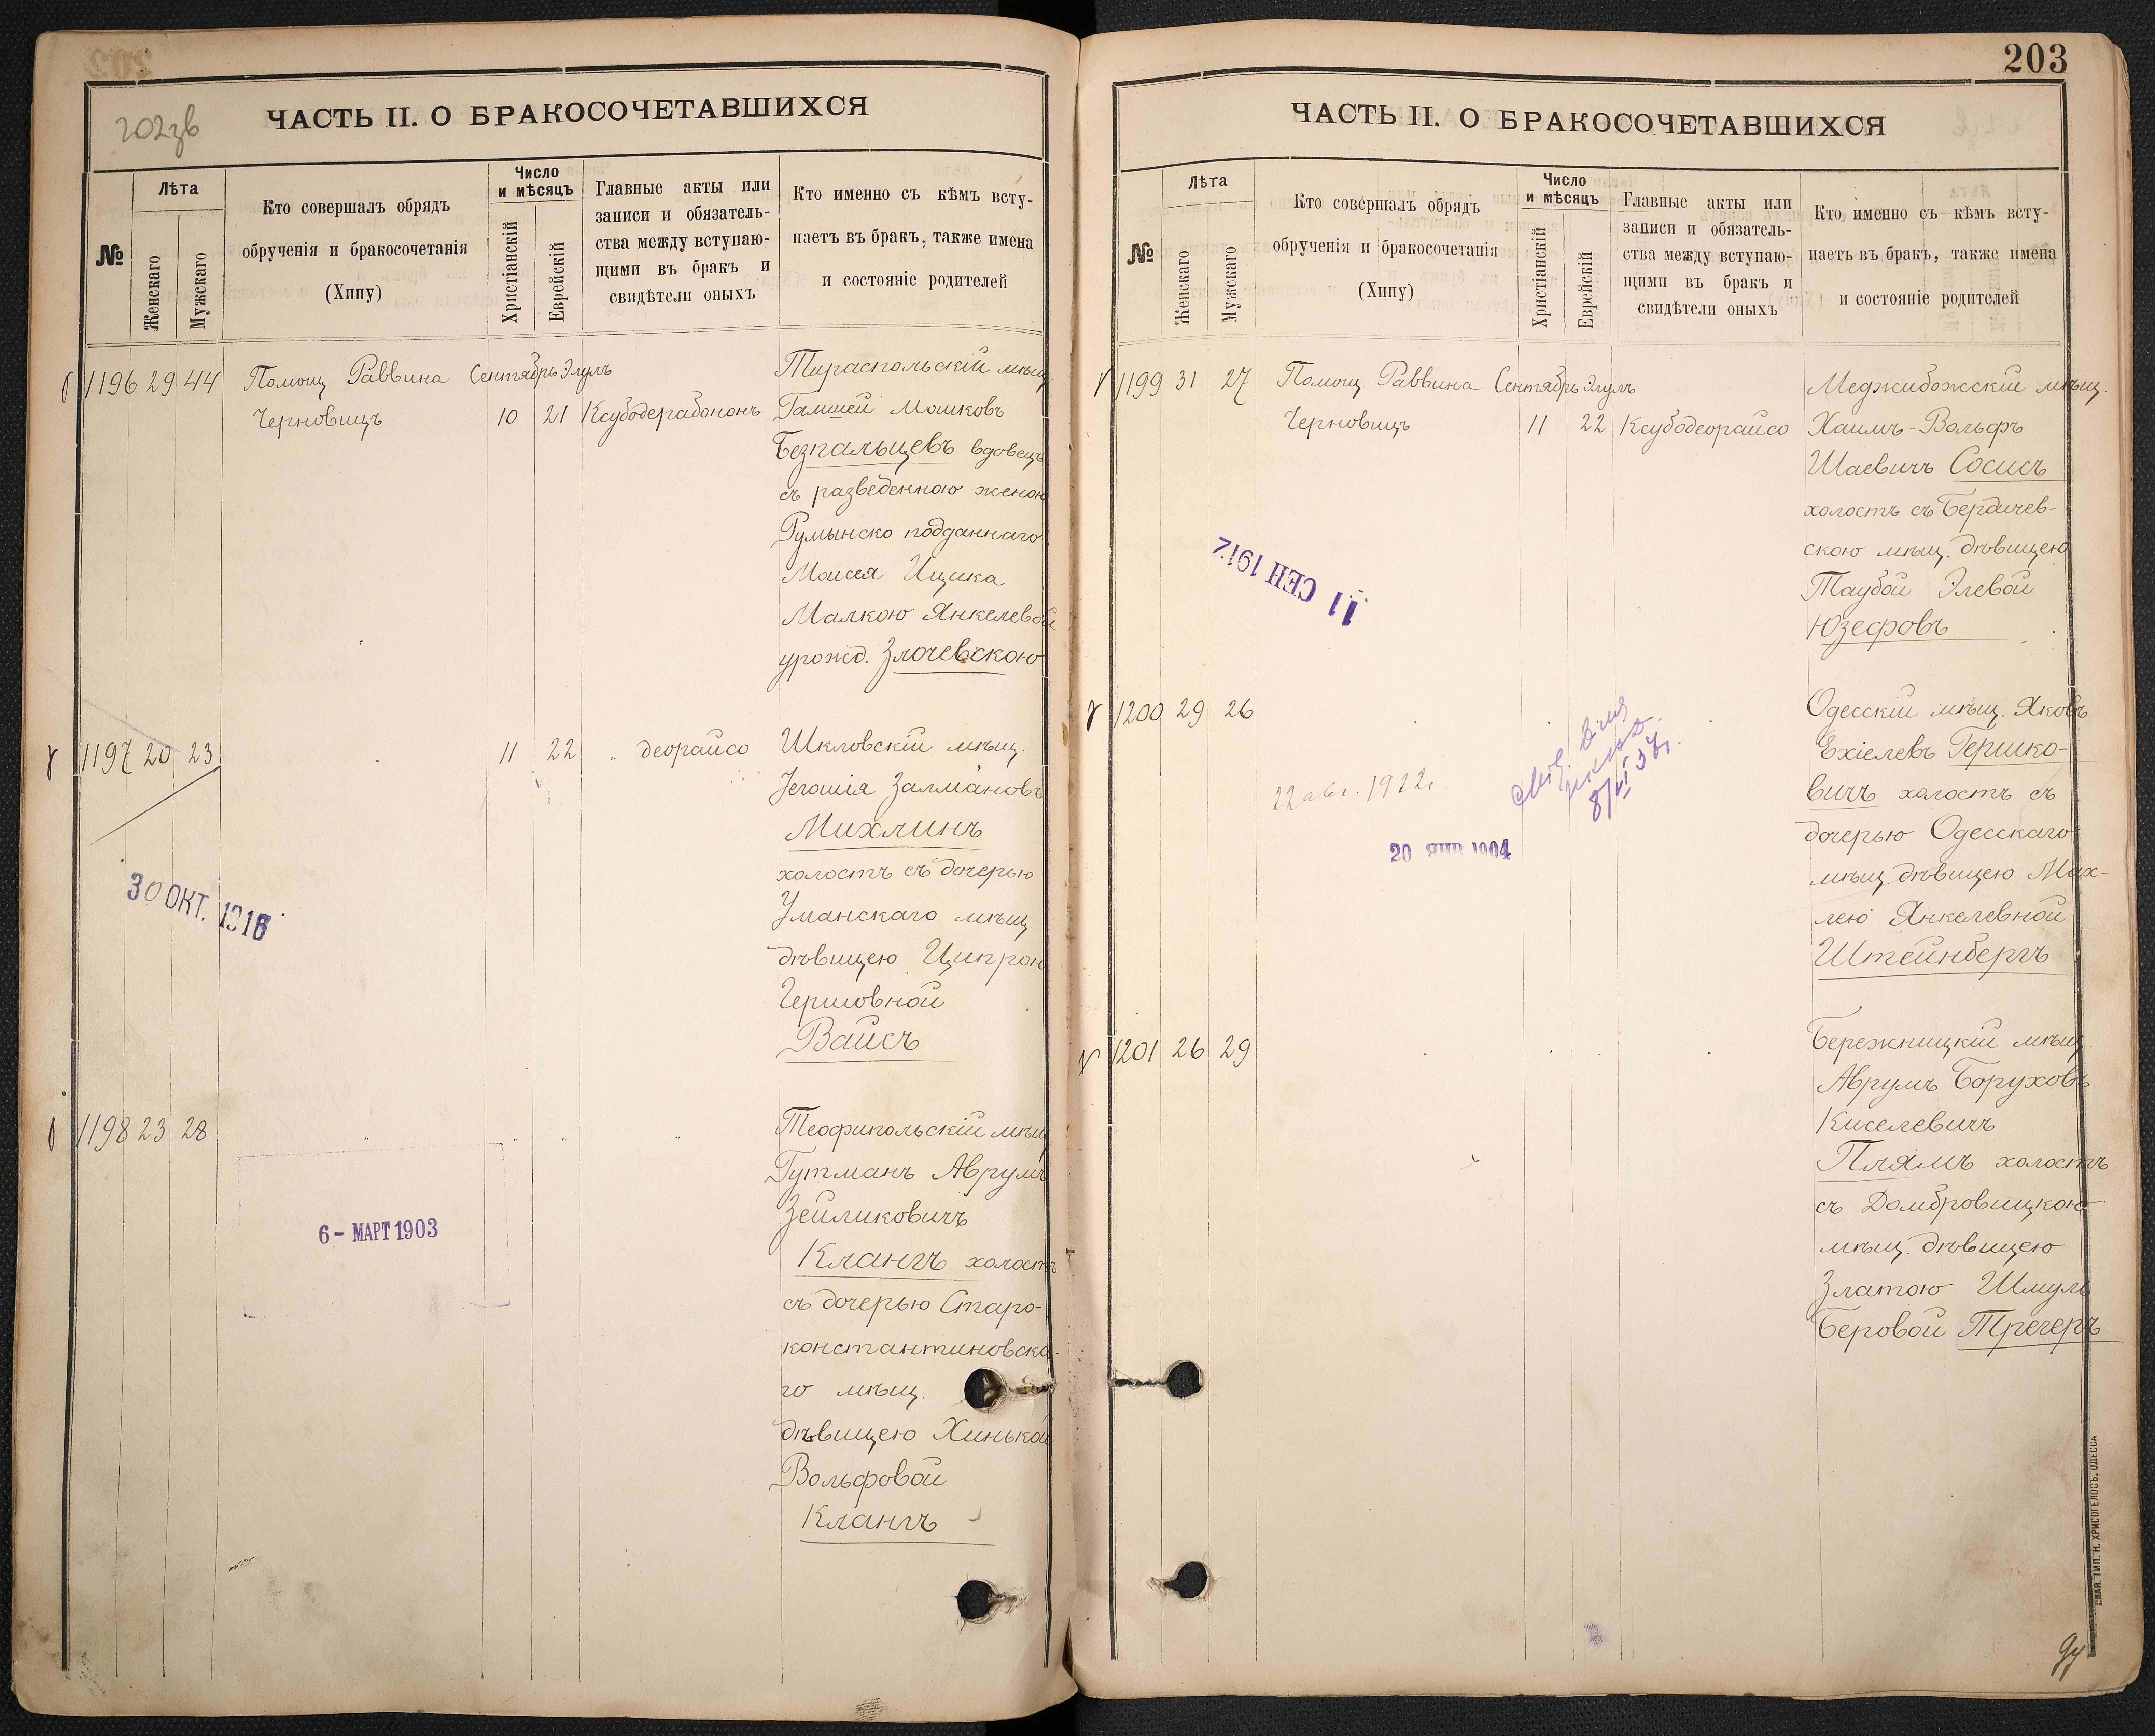 202зв
ЧАСТЬ II. О БРАКОСОЧЕТАВШИХСЯ
№
Лѣта
Женскаго
Мужскаго
Кто совершалъ обрядъ
обрученія и бракосочетанія
(Хипу)
Число
и мѣсяцъ
Христіанскій
Еврейскій
Главные акты или
записи и обязатель-
ства между вступаю-
щими въ бракъ и
свидѣтели оныхъ
Кто именно съ кѣмъ всту-
паетъ въ бракъ, также имена
и состояніе родителей
1196 29 44 Помощ Раввина Сентябрь Элулъ Тираспольскій мѣщ
Черновицъ 10 21 Ксубодерабононъ Гамшей Мошковъ
Безпальцевъ вдовецъ
съ разведенною женою
Румынско подданнаго
Моисея Ицика
Малкою Янкелевой
урожд. Злочевскою
1197 20 23 11 22 деорайсо Шкловскій мѣщ.
Іегошія Залмановъ
Михлинъ
холостъ съ дочерью
Уманскаго мѣщ
дѣвицею Ципрой
Гершовной
Вайсъ
30 ОКТ. 1916
1198 23 28 Теофипольскій мѣщ
Гутманъ Аврумъ
Зейликовичъ
Клангъ холостъ
съ дочерью Старо-
константиновска-
го мѣщ.
дѣвицею Хинькой
Вольфовой
Клангъ
6 - МАРТ 1903
203
ЧАСТЬ II. О БРАКОСОЧЕТАВШИХСЯ
№
Лѣта
Женскаго
Мужскаго
Кто совершалъ обрядъ
обрученія и бракосочетанія
(Хипу)
Число
и мѣсяцъ
Христіанскій
Еврейскій
Главные акты или
записи и обязатель-
ства между вступаю-
щими въ бракъ и
свидѣтели оныхъ
Кто именно съ кѣмъ всту-
паетъ въ бракъ, также имена
и состояніе родителей
1199 31 27 Помощ. Раввина Сентябрь Элулъ Меджибожскій мѣщ.
Черновицъ 11 22 Ксубодеорайсо Хаимъ-Вольфъ
Шаевичъ Сосисъ
холостъ съ Бердичев-
скою мѣщ. дѣвицею
Таубой Элевой
Юзефовъ
11 СЕН 1912
1200 29 26 Одесскій мѣщ. Яковъ
Ехіелевъ Гершко-
вичъ холостъ съ
дочерью Одесскаго
мѣщ. дѣвицею Мах-
лею Янкелевной
Штейнбергъ
22 авг. 1922г.
8/VI 37г.
20 ЯНВ 1904
1201 26 29 Бережницкій мѣщ.
Аврумъ Боруховъ
Киселевичъ
Плямъ холостъ
съ Домбровицкою
мѣщ. дѣвицею
Златою Шмуль
Беровой Трегеръ
ТИП. Н. ХРИСОГЕЛОСЪ, ОДЕССА